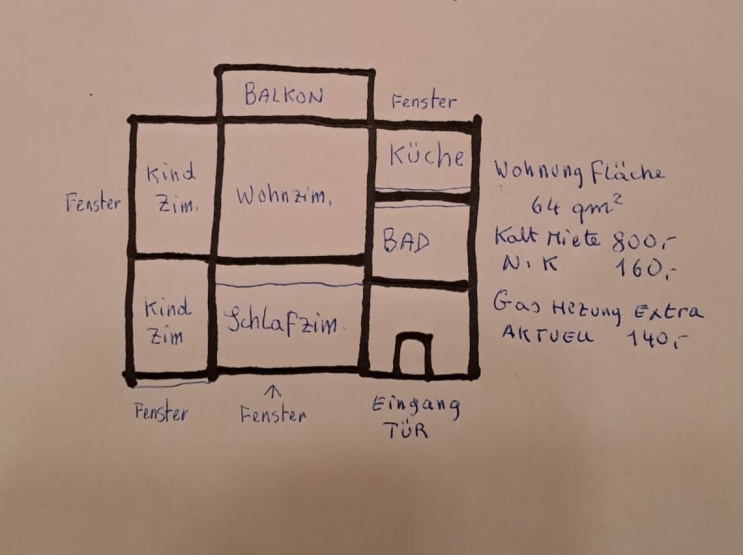 BALKON
Fenster
Kind
Zim.
Wohnzim.
Küche
Fenster
BAD
Kind
Zim
Schlafzim.
Fenster
Fenster
Eingang
TÜR
Wohnung Fläche
64 qm²
Kalt Miete 800,-
N.K 160,-
Gas Hezung Extra
AKTUELL 140,-